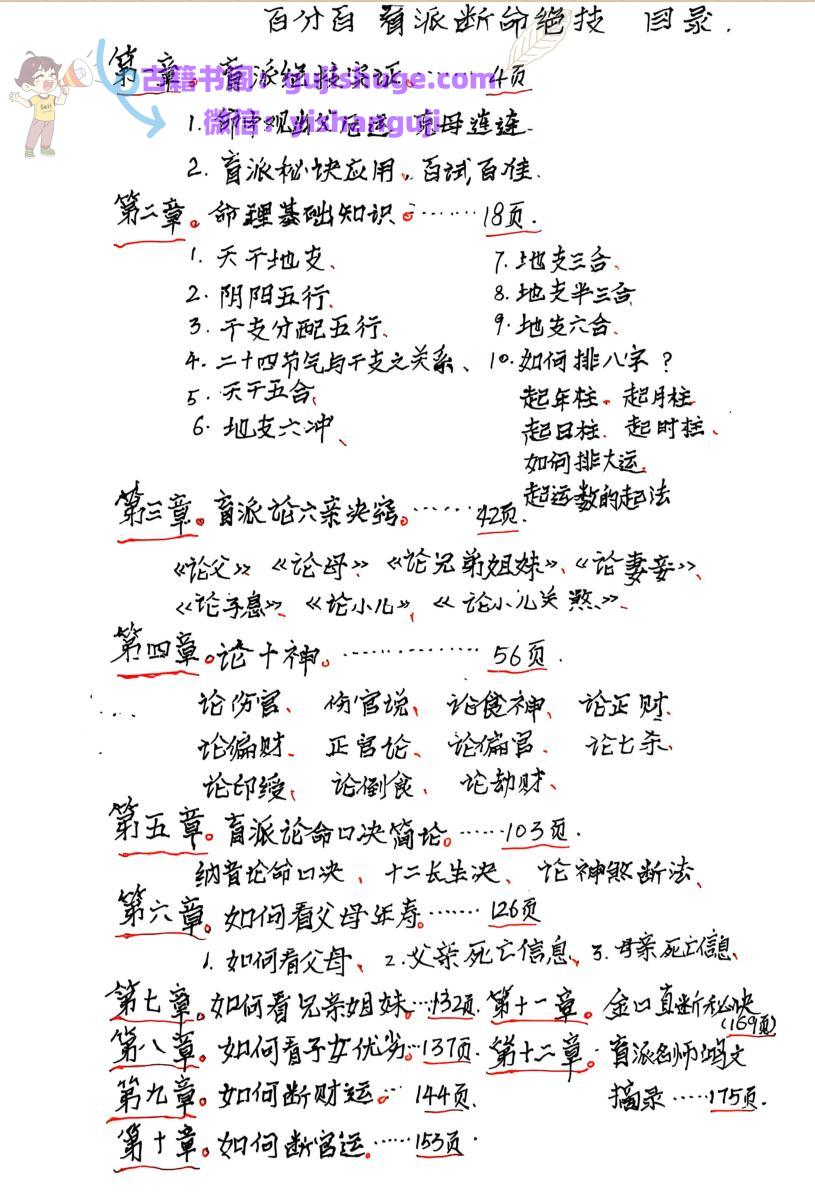 百分百 盲派断命绝技 目录.
第一章。盲派绝技实证.……4页
古籍书阁：gujishuge.com
微信：yishanguji
Sell
2. 盲派秘诀应用、百试百准.
第二章。命理基础知识。……18页.
1. 天干地支、
2. 阴阳五行、
3. 干支分配五行、
4. 二十四节气与干支之关系、
5. 天干五合、
6. 地支六冲、
7. 地支三合、
8. 地支半三合
9. 地支六合.
10. 如何排八字？
起年柱. 起月柱
起日柱. 起时柱、
如何排大运.
起运数的起法
第三章。盲派论六亲决窍。……42页.
《论父》《论母》《论兄弟姐妹》、《论妻妾》、
《论子息》、《论小儿》,《论小儿关煞》.
第四章。论十神。……………56页.
论伤官、 伤官说、 论食神、 论正财.
论偏财. 正官论、 论偏官. 论七杀、
论印绶、 论倒食、 论劫财、
第五章。盲派论命口决简论。……103页.
纳音论命口决、十二长生决、论神煞断法、
第六章. 如何看父母年寿。……126页
1. 如何看父母、2. 父亲死亡信息、3. 母亲死亡信息、
第七章. 如何看兄亲姐妹…132页.
第八章. 如何看子女优劣…137页.
第九章. 如何断财运… 144页.
第十章. 如何断官运……153页.
第十一章。金口直断秘诀
(169页)
第十二章. 盲派名师鸿文
摘录……175页.